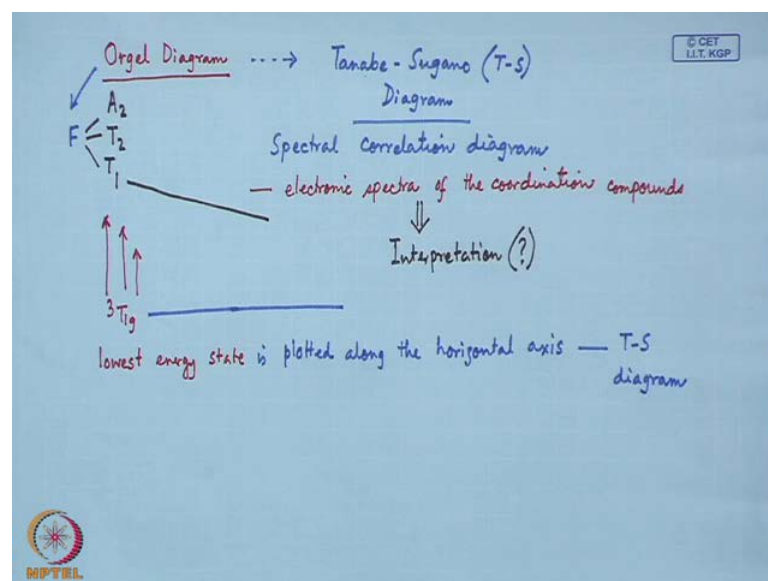 Orgel Diagram ----> Tanabe-Sugano (T-S)
Diagram
© CET
I.I.T. KGP
A2
F T2
T1
Spectral correlation diagram
— electronic spectra of the coordination compounds
⇓
Interpretation (?)
3T1g
lowest energy state is plotted along the horizontal axis — T-S
diagram
NPTEL